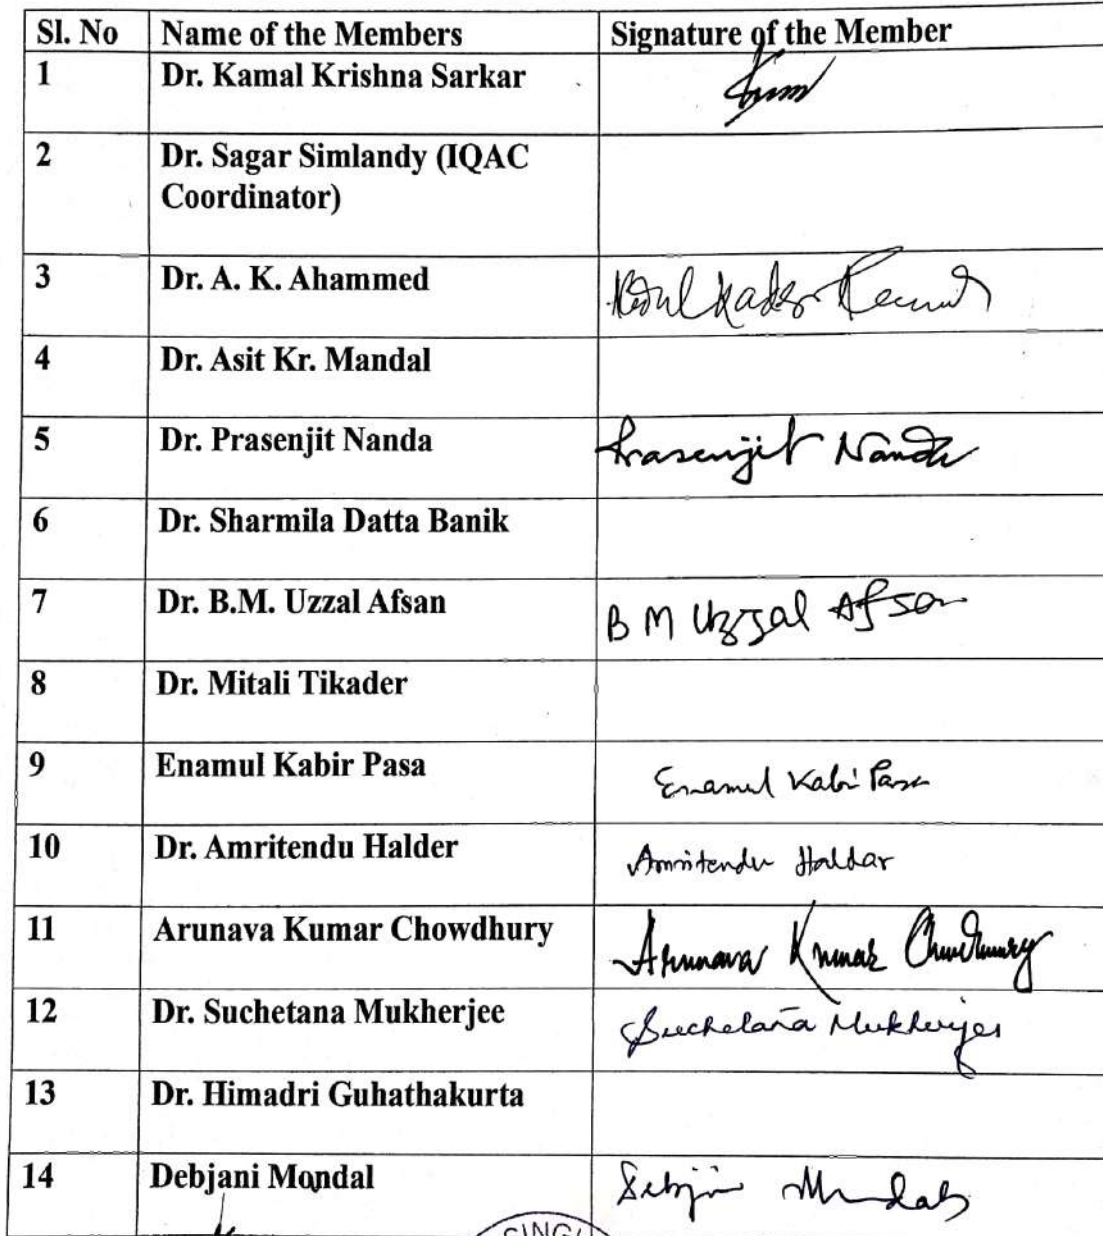 Sl. No Name of the Members Signature of the Member
1 Dr. Kamal Krishna Sarkar
2 Dr. Sagar Simlandy (IQAC
Coordinator)
3 Dr. A. K. Ahammed
4 Dr. Asit Kr. Mandal
5 Dr. Prasenjit Nanda Prasenjit Nanda
6 Dr. Sharmila Datta Banik
7 Dr. B.M. Uzzal Afsan B M Uzzal Afsan
8 Dr. Mitali Tikader
9 Enamul Kabir Pasa Enamul Kabir Pasa
10 Dr. Amritendu Halder Amritendu Haldar
11 Arunava Kumar Chowdhury Arunava Kumar Chowdhury
12 Dr. Suchetana Mukherjee Suchetana Mukherjee
13 Dr. Himadri Guhathakurta
14 Debjani Mondal Debjani Mondal